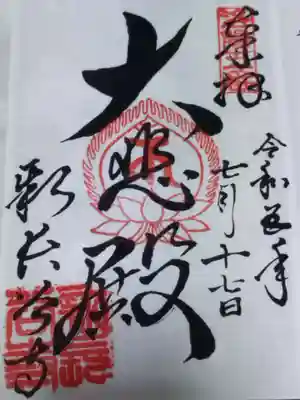 奉拝
令和五年
七月十七日
大悲殿
新長谷寺